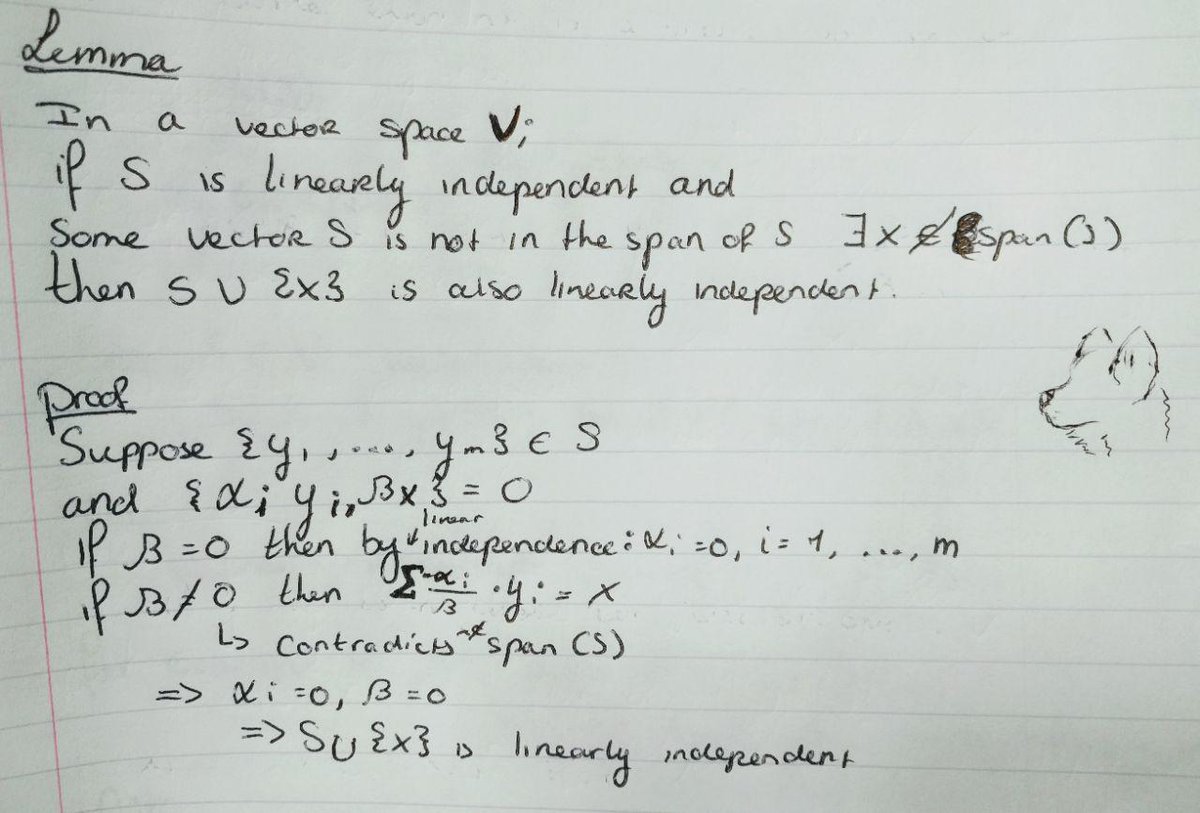 Lemma
In a vector space V;
if S is linearly independent and
Some vector S is not in the span of S ∃x ∉ span(S)
then S ∪ {x} is also linearly independent.
Proof
Suppose {y₁, ...., yₘ} ∈ S
and {αᵢ yᵢ, βx} = 0
if β = 0 then by linear independence: αᵢ = 0, i = 1, ..., m
if β ≠ 0 then Σ -αᵢ/β · yᵢ = x
↳ contradicts x∉ span(S)
=> αᵢ = 0, β = 0
=> S ∪ {x} is linearly independent